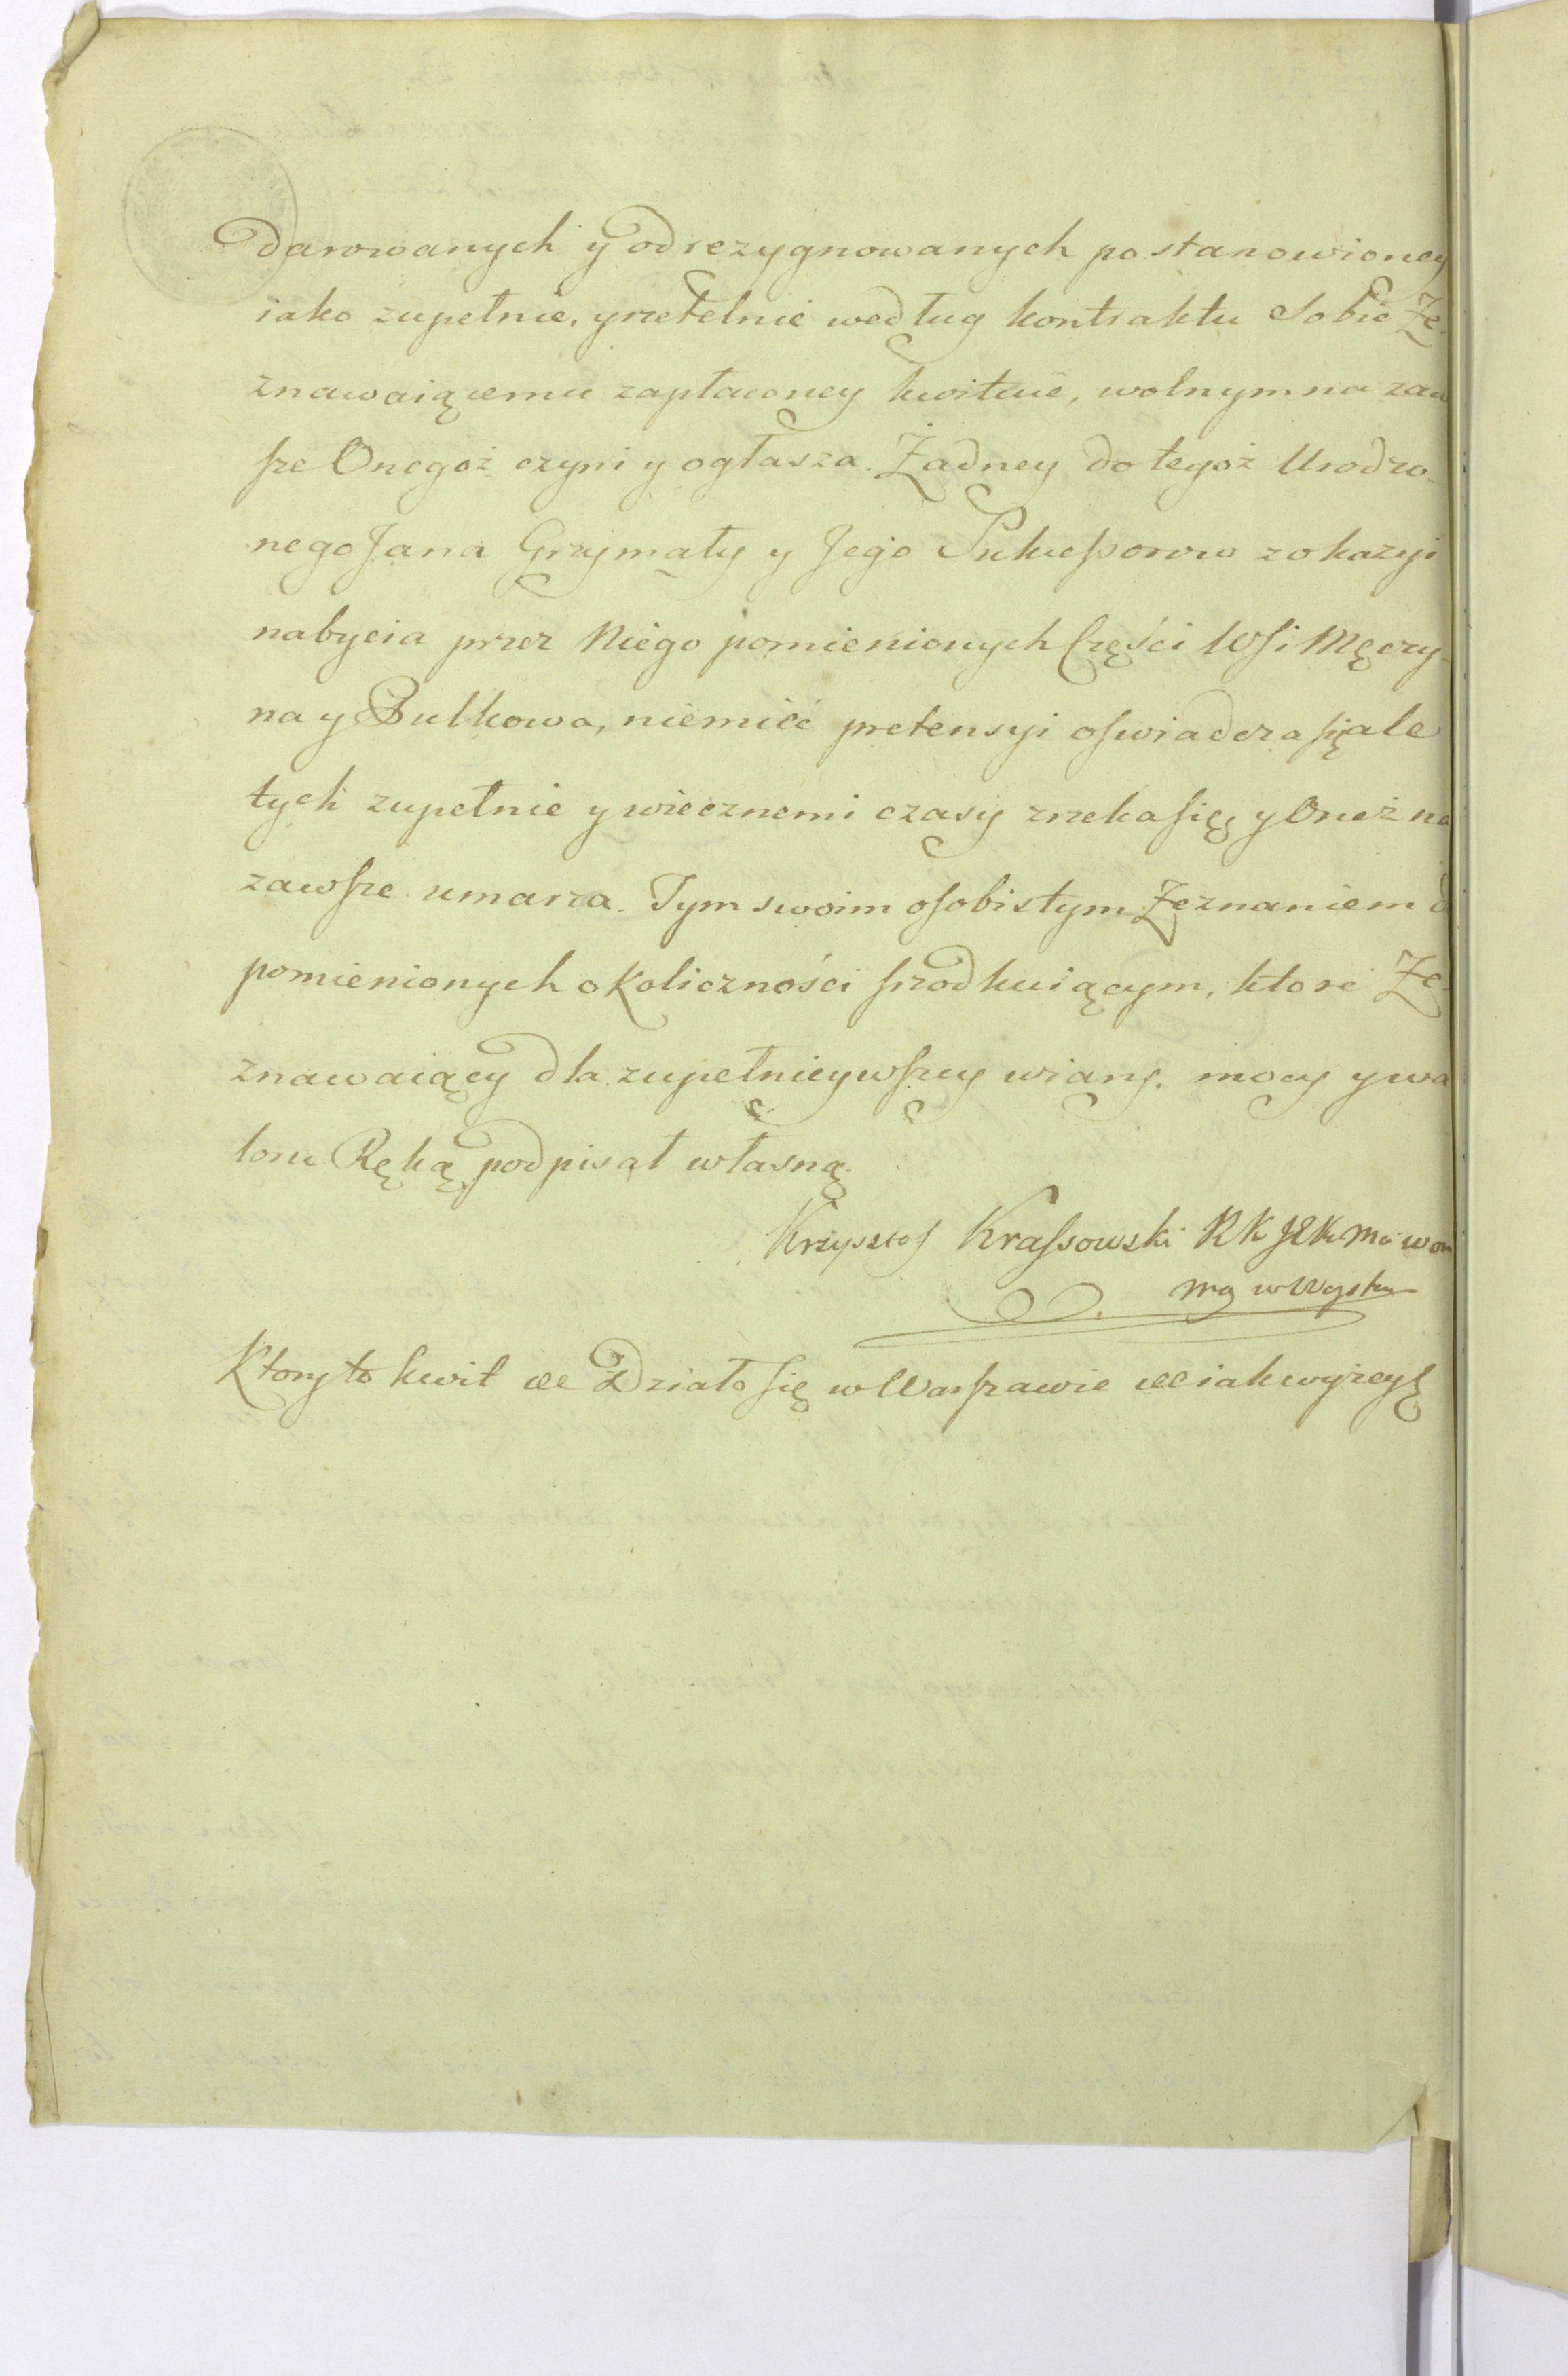 Darowanych y odrezygnowanych postanowioney
iako zupełnie, y rzetelnie według kontraktu Sobie Ze-
znawaiącemu zapłaconey kwituie, wolnym na zaw
sze Onegoż czyni y ogłasza. Żadney do tegoż Urodzo-
nego Jana Grzymały y Jego Sukcessorow z okazyi
nabycia przez Niego pomienionych Części Wsi Męczy-
na y Bulkowa, niemieć pretensyi oswiadcza się ale
tych zupełnie y wiecznemi czasy zrzeka się, y Oneż na
zawsze umarza. Tym swoim osobistym Zeznaniem
pomienionych okoliczności srzodkuiącym, ktore Ze-
znawaiący dla zupełnieywszey wiary, mocy y wa
loru Ręką podpisał własną.
Krzysztof Krassowski
Ktory to kwit &c Działo się w Warszawie &c iak wyżey